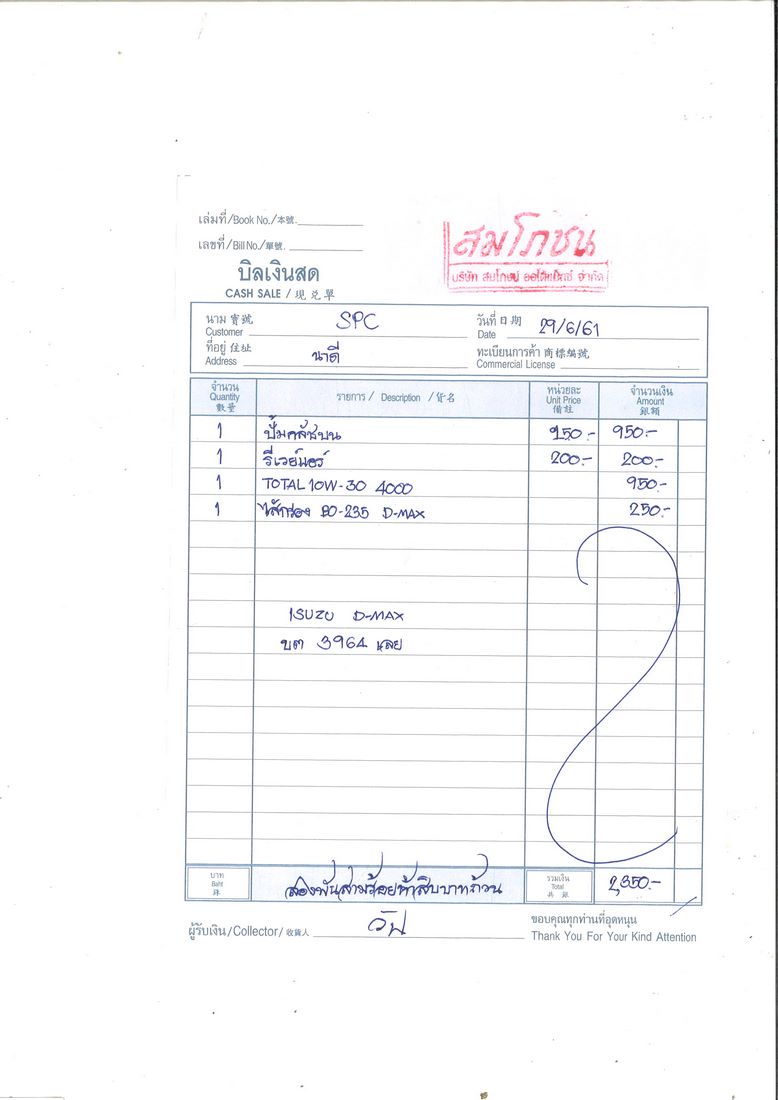 เล่มที่/Book No./本號.
เลขที่/Bill No./單號.
สมโภชน
บริษัท สมโภชน์ ออโต้พาร์ทส์ จำกัด
บิลเงินสด
CASH SALE / 現兌單
นาม 寶號 Customer SPC วันที่ 日期 Date 29/6/61
ที่อยู่ 住址 Address นาดี ทะเบียนการค้า 商標編號 Commercial License
จำนวน Quantity 數量 รายการ / Description / 貨名 หน่วยละ Unit Price 價銀 จำนวนเงิน Amount 銀額
1 ปั๊มคลัชบน 950.- 950.-
1 รีเวย์นอร์ 200.- 200.-
1 TOTAL 10W-30 4000 950.-
1 ไส้กรอง D-MAX 250.-
ISUZU D-MAX
บต 3964 เลย
บาท Baht 銖 สองพันสามร้อยห้าสิบบาทถ้วน รวมเงิน Total 共銀 2,350.-
ผู้รับเงิน/Collector/收貨人 ขอบคุณทุกท่านที่อุดหนุน
Thank You For Your Kind Attention